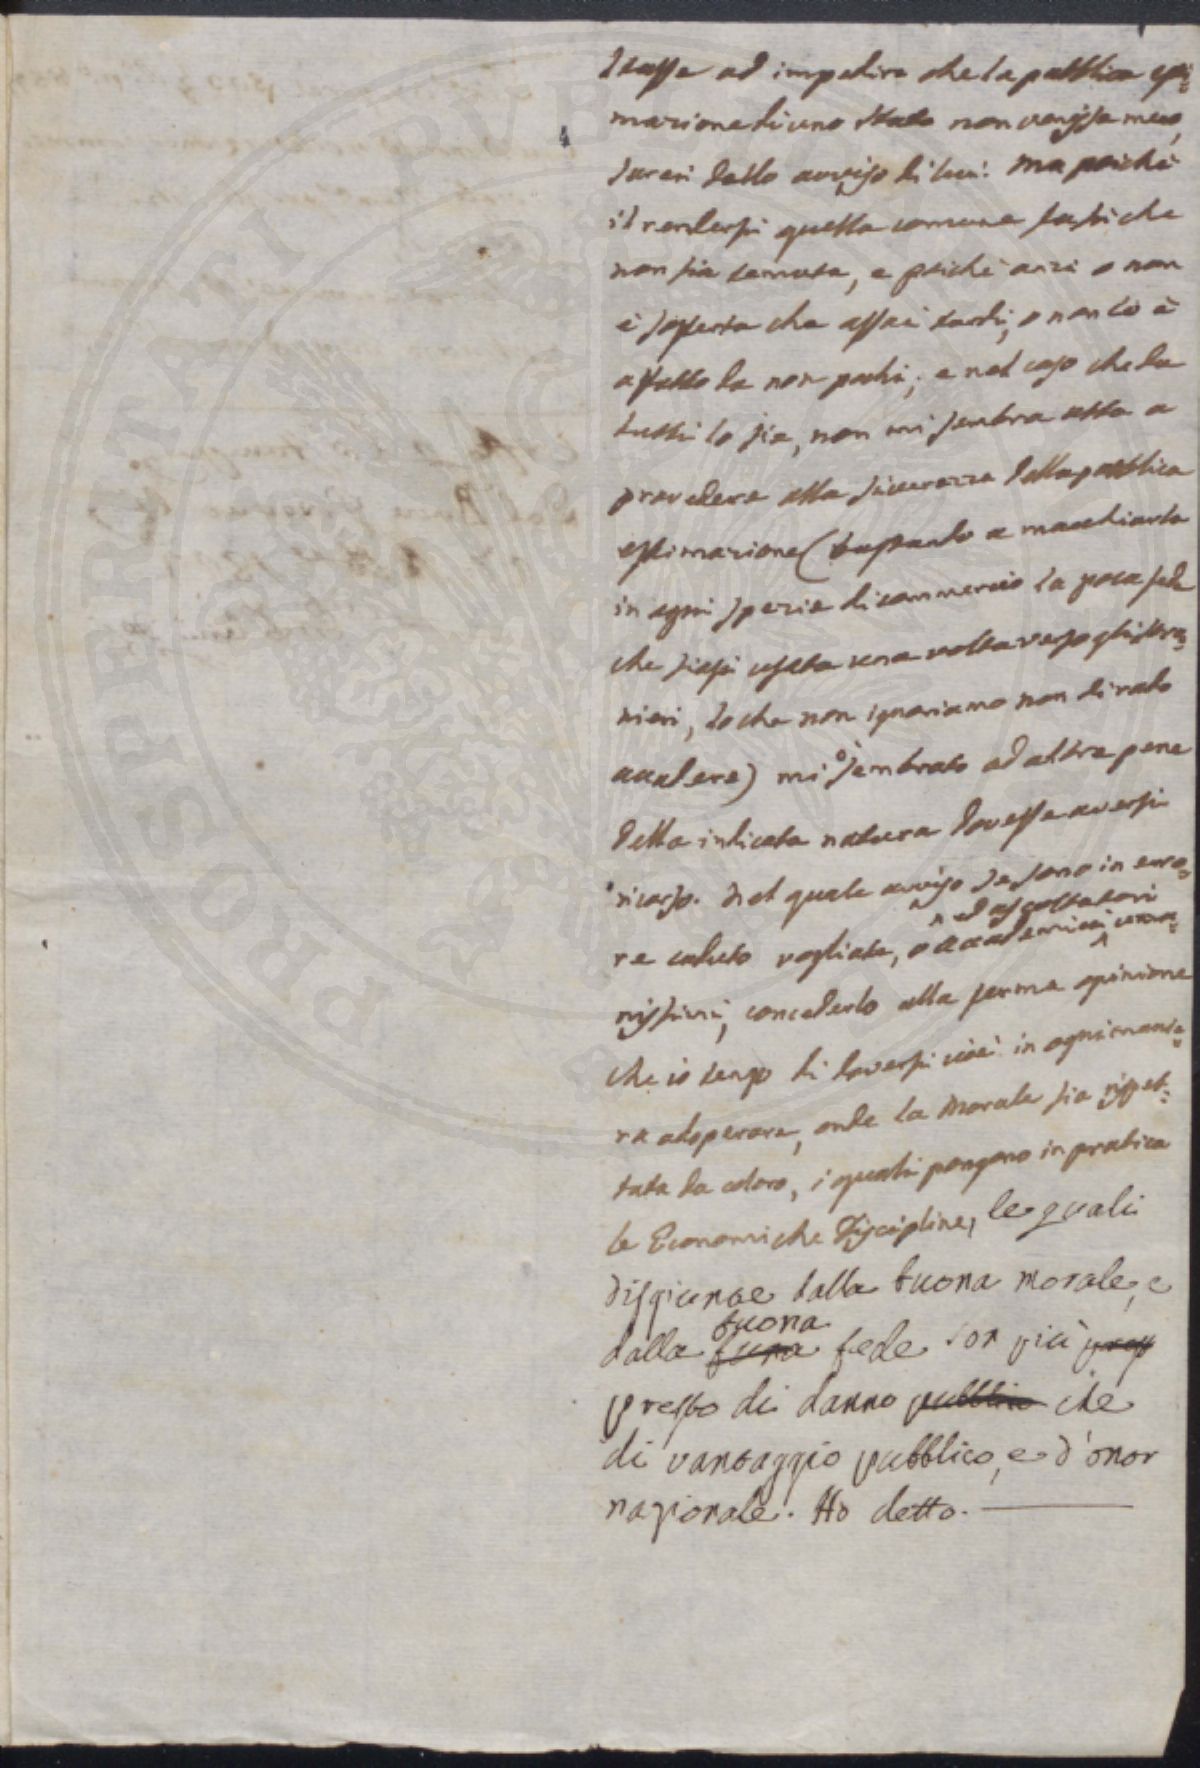 stasse ad impedire che la pubblica esti=
mazione di uno Stato non venisse meno,
sarei dello avviso di lui. Ma poichè
il rendersi quella comune fa sì che
non sia temuta, e poichè anzi o non
è sofferta che assai tardi, o non lo è
affatto da non pochi; e nel caso che da
tutti lo sia, non mi sembra atta a
provedere alla sicurezza della pubblica
estimazione (bastando a macchiarla
in ogni spezie di commercio la poca fede
che siasi usata una volta verso gli stra=
nieri, lo che non ignoriamo non di rado
accadere) mi è sembrato ad altra pene
della indicata natura dovesse aversi
ricorso. Nel quale avviso se sono in erro=
ed ascoltatori
re caduto vogliate, o accademici, uma=
nissimi, concederlo alla ferma opinione
che io tengo di doversi cioè in ogni manie=
ra adoperare, onde la Morale sia rispet=
tata da coloro, i quali pongono in pratica
le Economiche Discipline, le quali
disgiunte dalla buona morale, e
buona
dalla fede son più
presto di danno pubblico che
di vantaggio pubblico, e d'onor
nazionale. Ho detto.
PROSPERITATI PUBLICAE